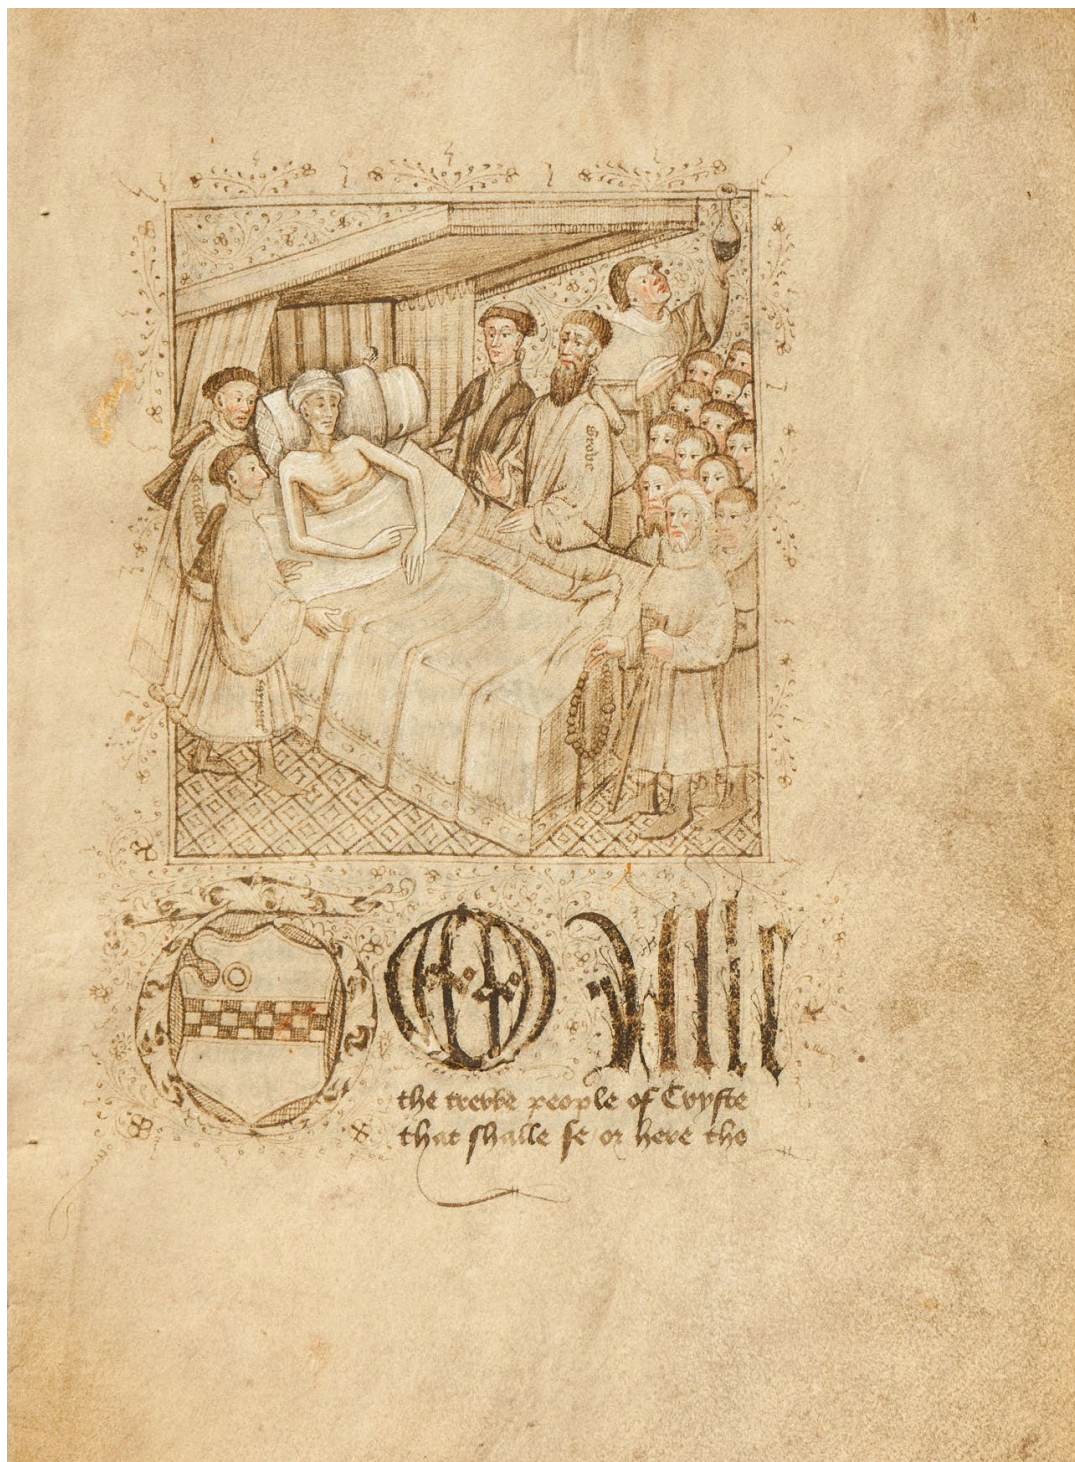 Grobye
To Alle
the trewe people of Cryste
that shalle se or here tho